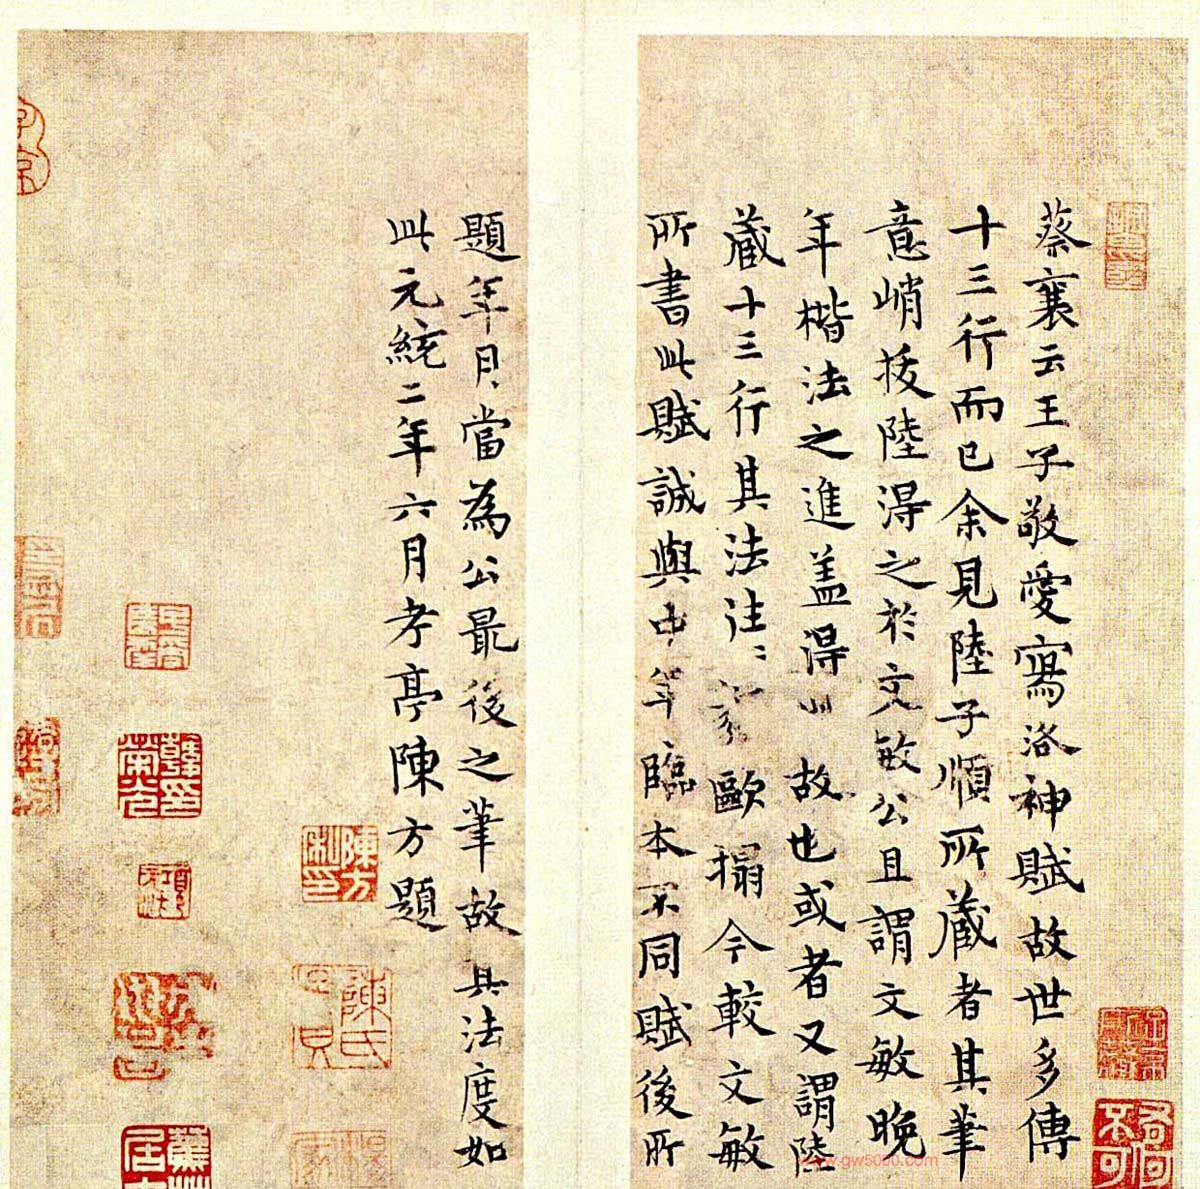 蔡襄云王子敬愛寫洛神賦故世多傳
十三行而已余見陸子順所藏者其筆
意峭拔陸得之於文敏公且謂文敏晚
年楷法之進盖得此故也或者又謂陸
藏十三行其法往〻歐搨今較文敏
所書此賦誠與中年臨本不同賦後所
題年月當為公最後之筆故其法度如
此元統二年六月孝亭陳方題
陳方私印
韓印榮光
www.gw5000.com